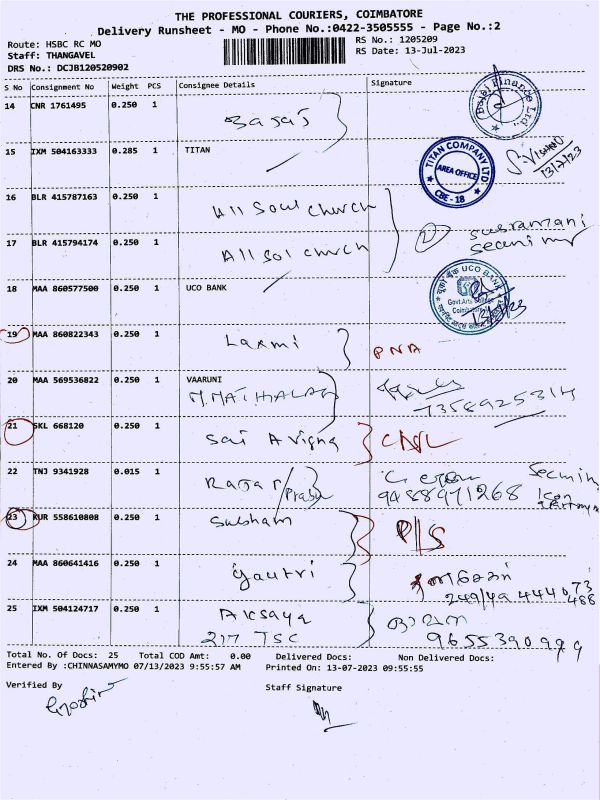 THE PROFESSIONAL COURIERS, COIMBATORE
Delivery Runsheet - MO - Phone No.:0422-3505555 - Page No.:2
Route: HSBC RC MO RS No.: 1205209
Staff: THANGAVEL RS Date: 13-Jul-2023
DRS No.: DCJB120520902
S No Consignment No Weight PCS Consignee Details Signature
14 CNR 1761495 0.250 1 Bajaj
Bajaj Finance Ltd.
15 IXM 504163333 0.285 1 TITAN
TITAN COMPANY LTD
AREA OFFICE
CBE - 18
13/7/23
16 BLR 415787163 0.250 1 All Soul Church
17 BLR 415794174 0.250 1 All Sol Church
2
18 MAA 860577500 0.250 1 UCO BANK
यूको बैंक UCO BANK
Govt. Arts College
19 MAA 860822343 0.250 1 Laxmi PNA
20 MAA 569536822 0.250 1 VAARUNI
21 SKL 668120 0.250 1 Sai Avigna
22 TNJ 9341928 0.015 1 / Prabu
9488971268
23 KUR 558610808 0.250 1 Subham
24 MAA 860641416 0.250 1 Gautri
25 IXM 504124717 0.250 1 Aksaya
217 TSC 9655390999
Total No. Of Docs: 25 Total COD Amt: 0.00 Delivered Docs: Non Delivered Docs:
Entered By :CHINNASAMYMO 07/13/2023 9:55:57 AM Printed On: 13-07-2023 09:55:55
Verified By Staff Signature